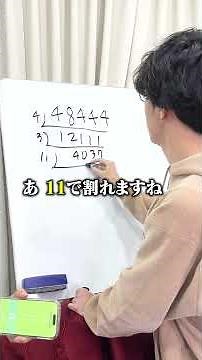 4) 48444
3) 12111
11) 4037
あ 11で割れますね